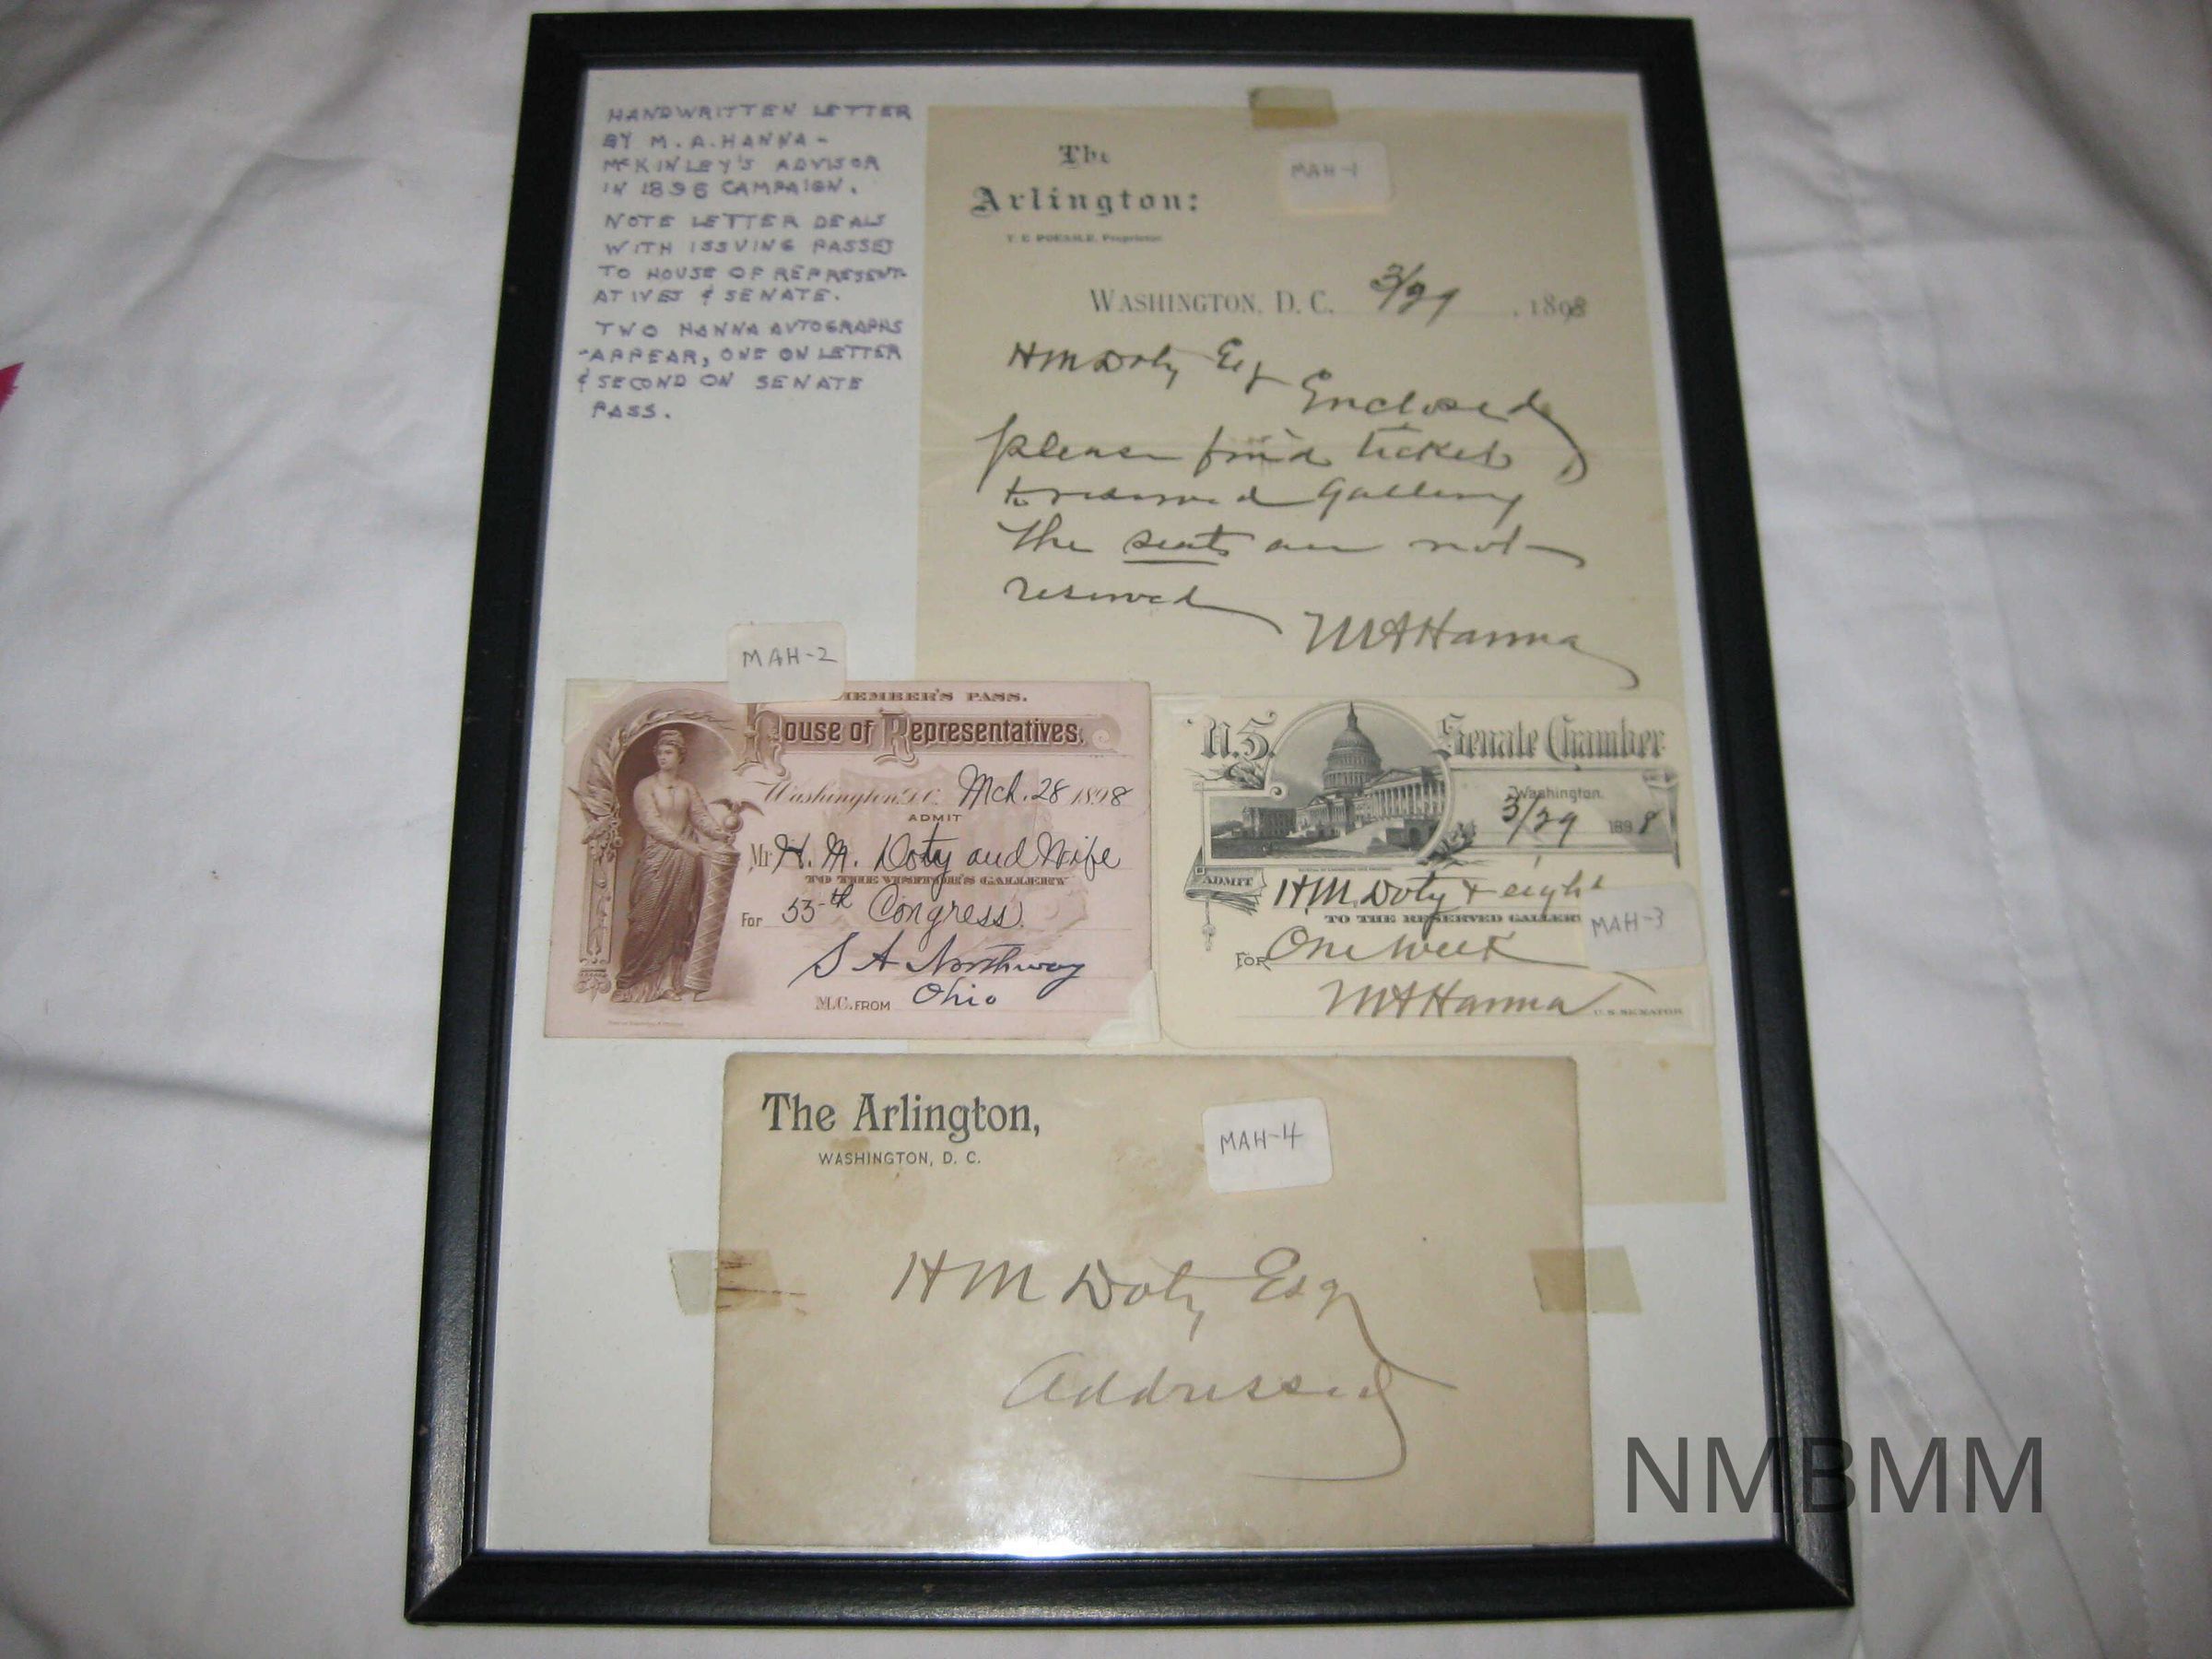 HANDWRITTEN LETTER
BY M. A. HANNA -
McKINLEY'S ADVISOR
IN 1896 CAMPAIGN.
NOTE LETTER DEALS
WITH ISSUING PASSES
TO HOUSE OF REPRESENT-
ATIVES & SENATE.
TWO HANNA AUTOGRAPHS
-APPEAR, ONE ON LETTER
& SECOND ON SENATE
PASS.
The
Arlington:
MAH-1
Proprietor
WASHINGTON, D. C. 3/29, 1898
HM Doty Esq
Enclosed
please find ticket
to reserved gallery
The seats are not
reserved
MAHanna
MAH-2
MEMBER'S PASS.
House of Representatives.
Washington, D.C. Mch. 28 1898
ADMIT
Mr H. M. Doty and Wife
TO THE VISITOR'S GALLERY
For 55-th Congress.
S A Northway
M.C. FROM Ohio
U.S. Senate Chamber
Washington.
3/29 1898
ADMIT HM Doty & eight
TO THE RESERVED GALLERY
MAH-3
FOR One week
MAHanna U.S. SENATOR
The Arlington,
WASHINGTON, D. C.
MAH-4
HM Doty Esq
Addressed
NMBMM